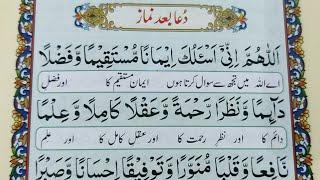 دُعا بعد نماز
اَللّٰهُمَّ اِنِّیْ اَسْئَلُكَ اِیْمَانًا مُّسْتَقِیْمًا وَّفَضْلًا
اے اللہ میں تجھ سے سوال کرتا ہوں ایمان مستقیم کا اور فضلِ
دَآئِمًا وَّنَظَرًا رَّحْمَةً وَّعَقْلًا كَامِلًا وَّعِلْمًا
دائم کا اور نظرِ رحمت کا اور عقل کامل کا اور علمِ
نَافِعًا وَّقَلْبًا مُّنَوَّرًا وَّتَوْفِیْقًا اِحْسَانًا وَّصَبْرًا